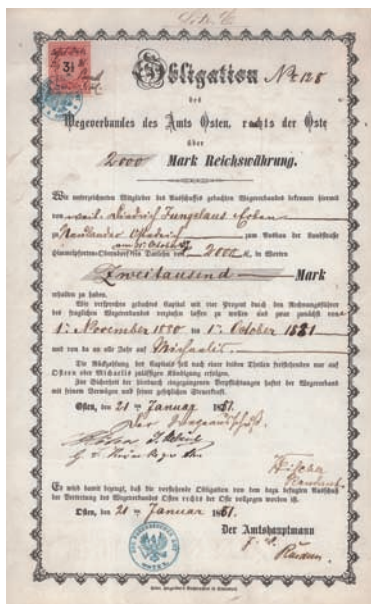 Obligation No 128
des
Wegeverbandes des Amts Osten, rechts der Oste
über
2000 Mark Reichswährung.
Wir unterzeichneten Mitglieder des Ausschusses gedachten Wegeverbandes bekennen hiermit
von weil. Diedrich Jungclaus Erben
zu zum Ausbau der Landstraße
Himmelpforten-Oberndorf ein Darlehn von 2000 M, in Worten
Zweitausend Mark
erhalten zu haben.
Wir versprechen gedachtes Capital mit vier Prozent durch den Rechnungsführer
des fraglichen Wegeverbandes verzinsen lassen zu wollen und zwar zunächst vom
1. November 1880 zu 1. October 1881
und von da an alle Jahr auf Michaelis.
Die Rückzahlung des Capitals soll nach einer beiden Theilen freistehenden nur auf
Ostern oder Michaelis zulässigen Kündigung erfolgen.
Zur Sicherheit der hiedurch eingegangenen Verpflichtungen haftet der Wegeverband
mit seinem Vermögen und seiner gesetzlichen Steuerkraft.
Osten, den 21 ten Januar 1881.
Der Wegeausschuß.
Fischer
Es wird damit bezeugt, daß die vorstehende Obligation von dem dazu befugten Ausschuß
der Vertretung des Wegeverbandes Osten rechts der Oste vollzogen worden ist.
Osten, den 21 ten Januar 1881.
Der Amtshauptmann